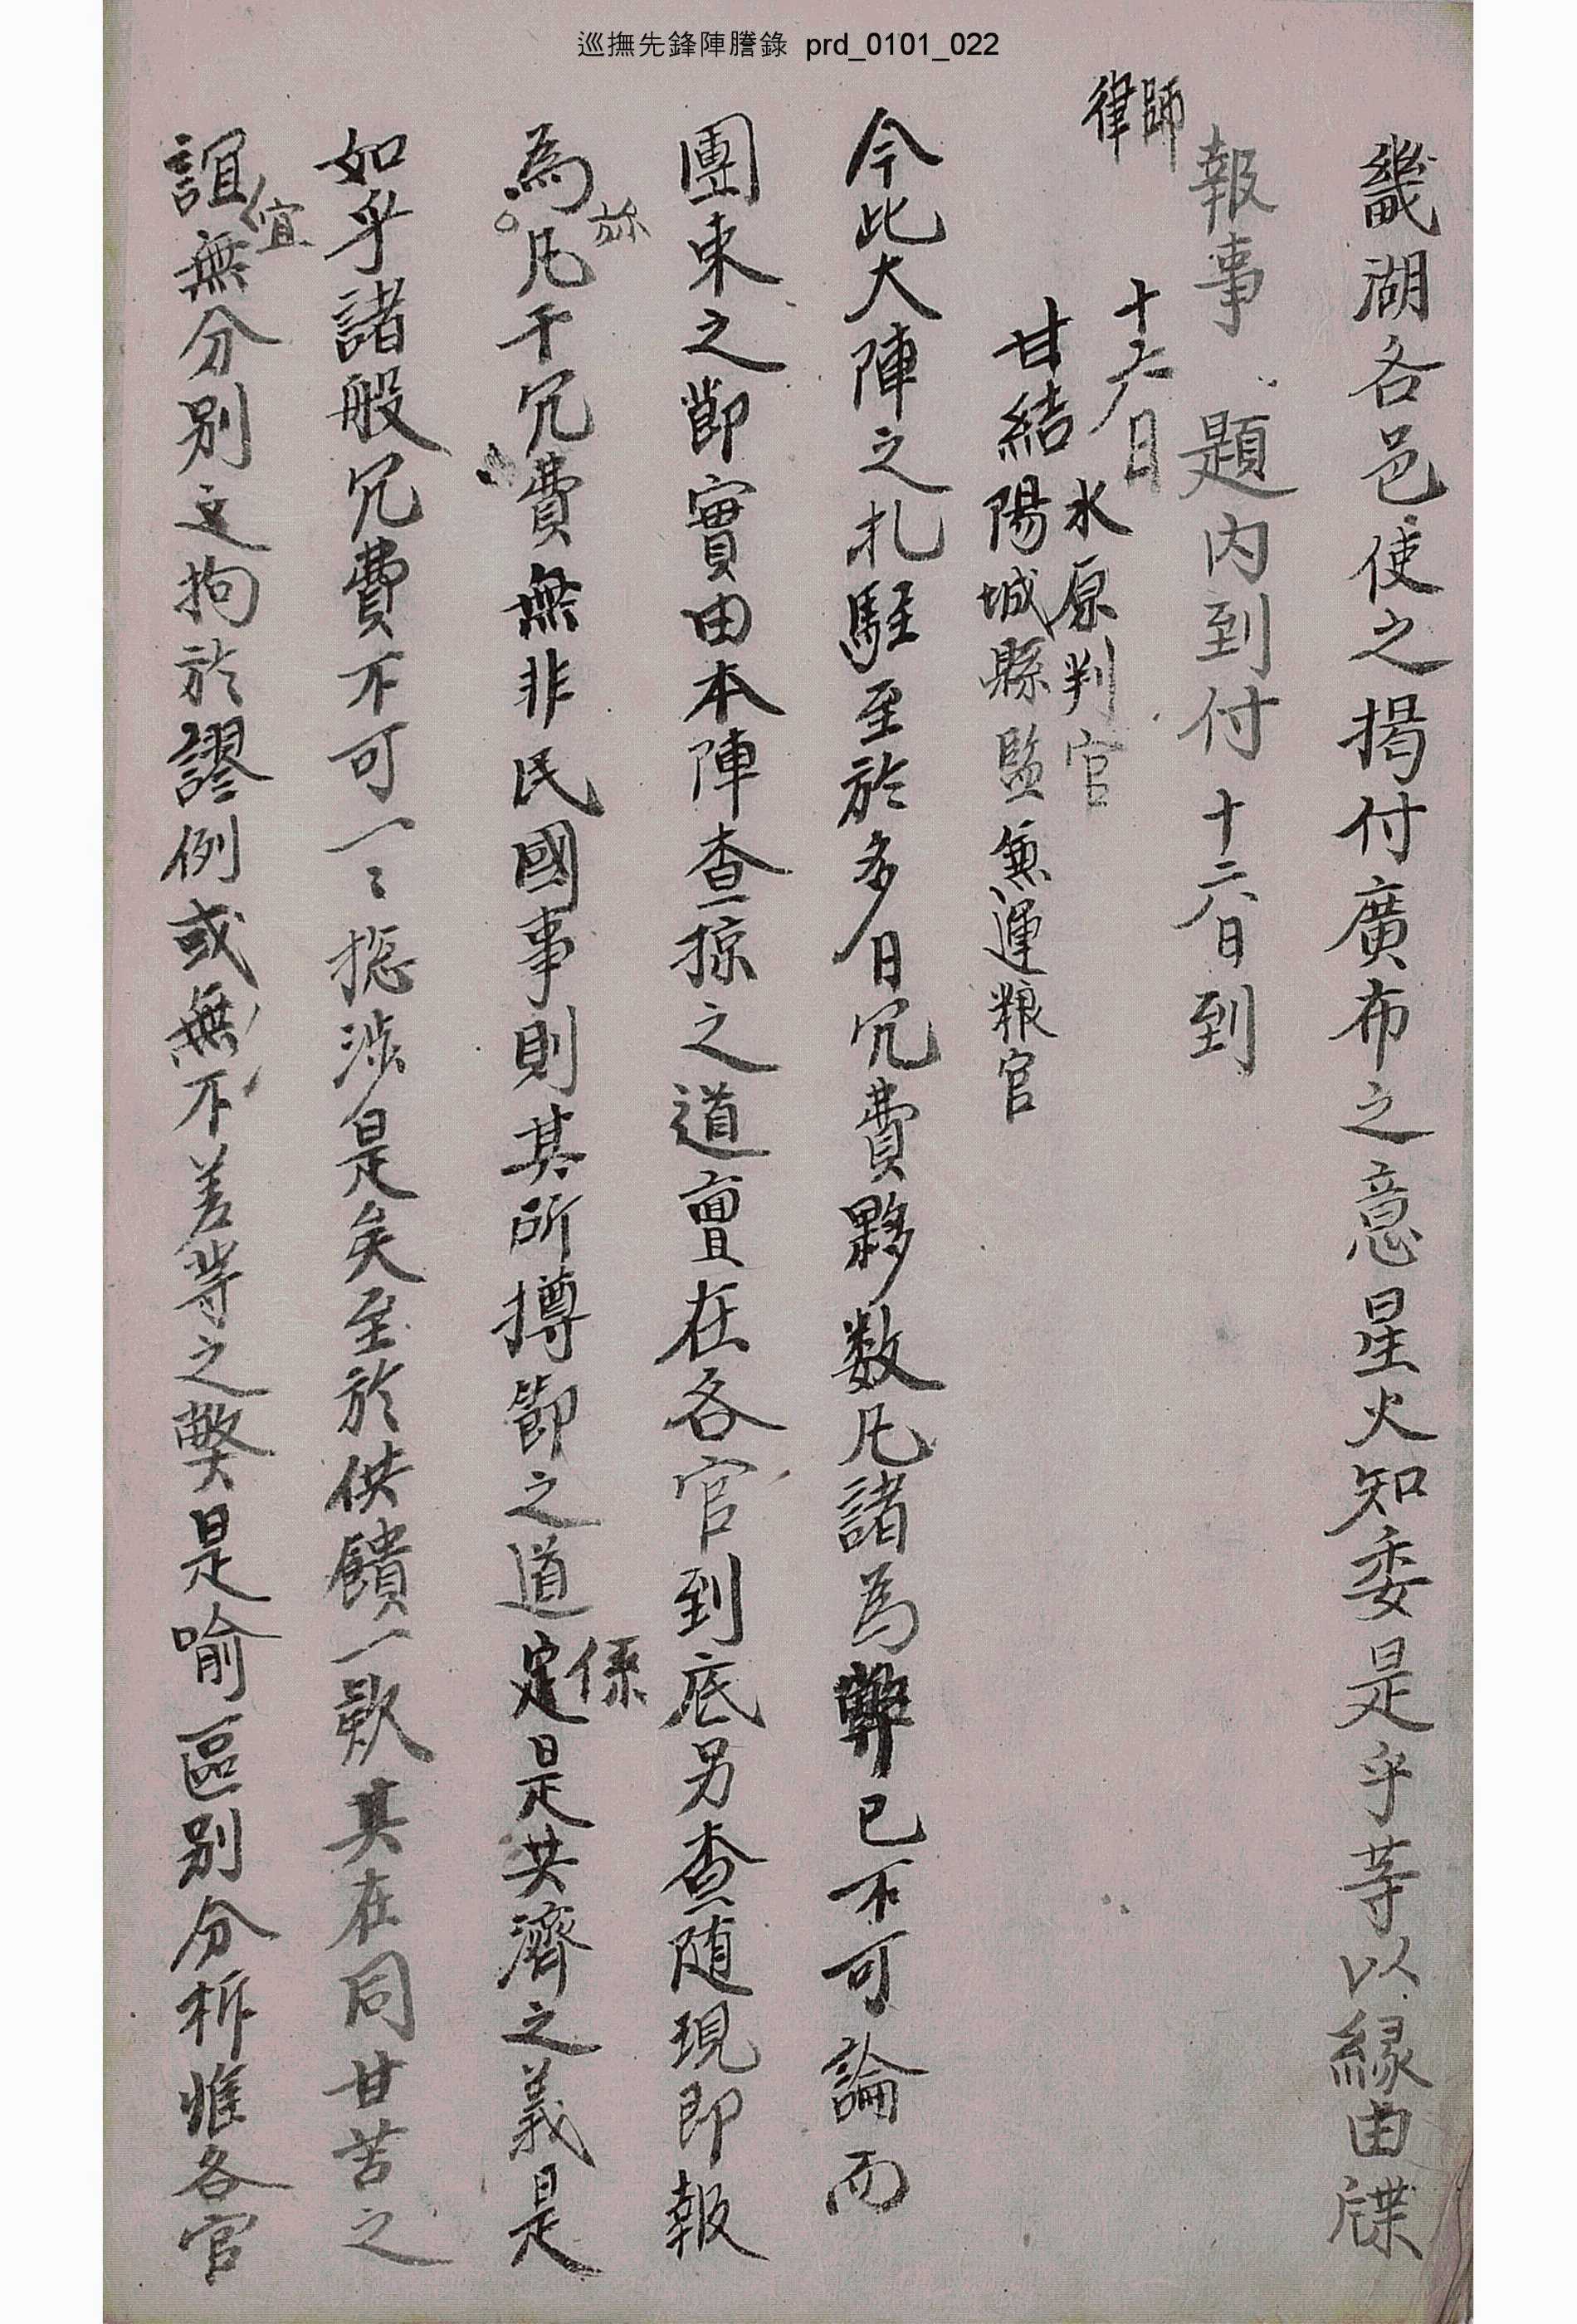 巡撫先鋒陣謄錄 prd_0101_022
畿湖各邑使之揭付廣布之意星火知委是乎等以緣由牒
報事 題內到付十六日到
律師
十六日
水原判官
甘結陽城縣監兼運粮官
今此大陣之札駐至於多日冗費夥数凡諸為弊已不可論而
團束之節實由本陣查掠之道亶在各官到底另查随現即報
為㫆凡干冗費無非民國事則其所撙節之道定係是共濟之義是
如乎諸般冗費不可一〻揔涉是矣至於供饋一欵其在同甘苦之
誼宜無分別之拘於謬例或無不差等之弊是喻區別分柝惟各官